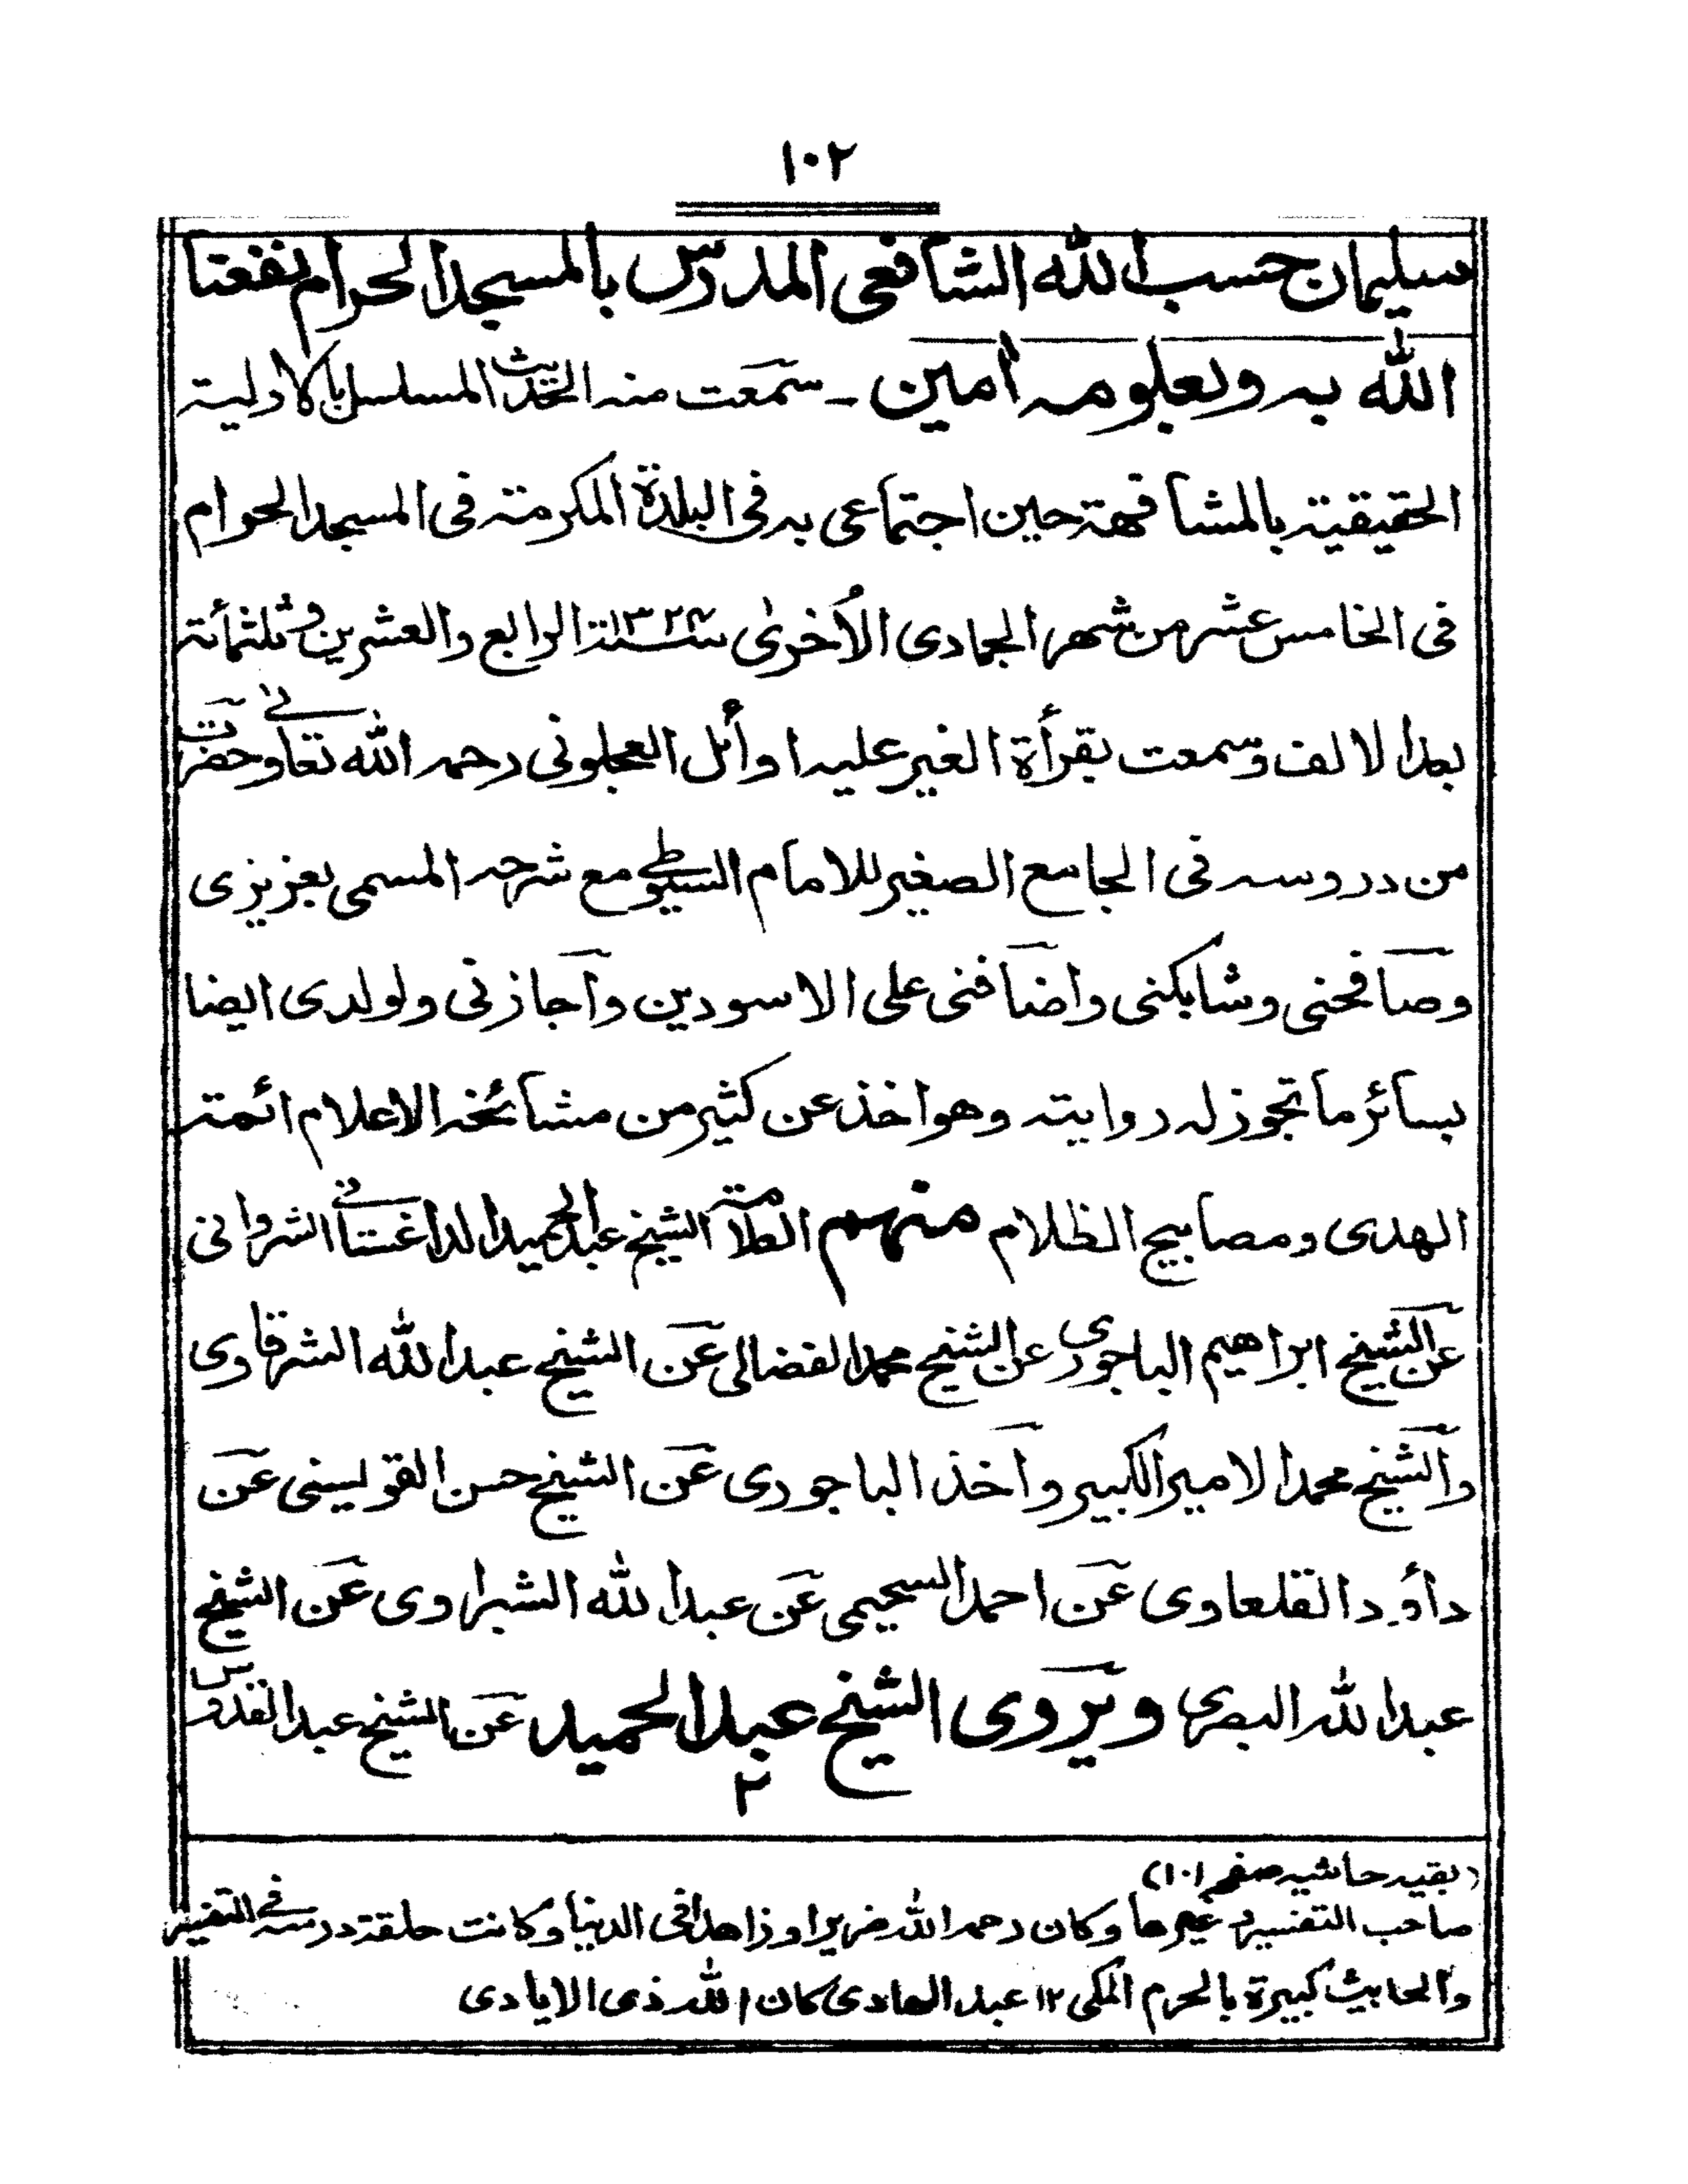 ١٠٢
سليمان حسب الله الشافعى المدرّس بالمسجد الحرام نفعنا
الله به وبعلومه اٰمين ـ سمعت منه الحديث المسلسل بالاولية
الحقيقية بالمشافهة حين اجتماعى به فى البلدة المكرمة فى المسجد الحرام
فى الخامس عشر من شهر الجمادى الاُخرىٰ سنة ١٣٢٤ الرابع والعشرين وثلثمائة
بعد الالف وسمعت بقرأة الغير عليه اوأئل العجلونى رحمه الله تعالى وحضرت
من دروسه فى الجامع الصغير للامام السيوطى مع شرحه المسمى بعزيزى
وصافحنى وشابكنى واضافنى على الاسودين واجازنى ولولدى ايضا
بسائر ما تجوز له روايته وهو اخذ عن كثير من مشائخه الاعلام ائمة
الهدى ومصابيح الظلام منهم العلامة الشيخ عبد الحميد الداغستانى الشروانى
عن الشيخ ابراهيم الباجورى عن الشيخ محمد الفضالى عن الشيخ عبد الله الشرقاوى
والشيخ محمد الامير الكبير واخذ الباجورى عن الشيخ حسن القويسنى عن
داؤد القلعاوى عن احمد السحيمى عن عبد الله الشبراوى عن الشيخ
عبد الله البصرى ويروى الشيخ عبد الحميد عن الشيخ عبد القدوس
٢
(بقيه حاشيه صفحه ١٠١)
صاحب التفسير وغيرها وكان رحمه الله ضريرا وزاهدا فى الدنيا وكانت حلقة درسه فى التفسير
والحاديث كبيرة بالحرم المكى ١٢ عبد الهادى كان الله ذى الايادى